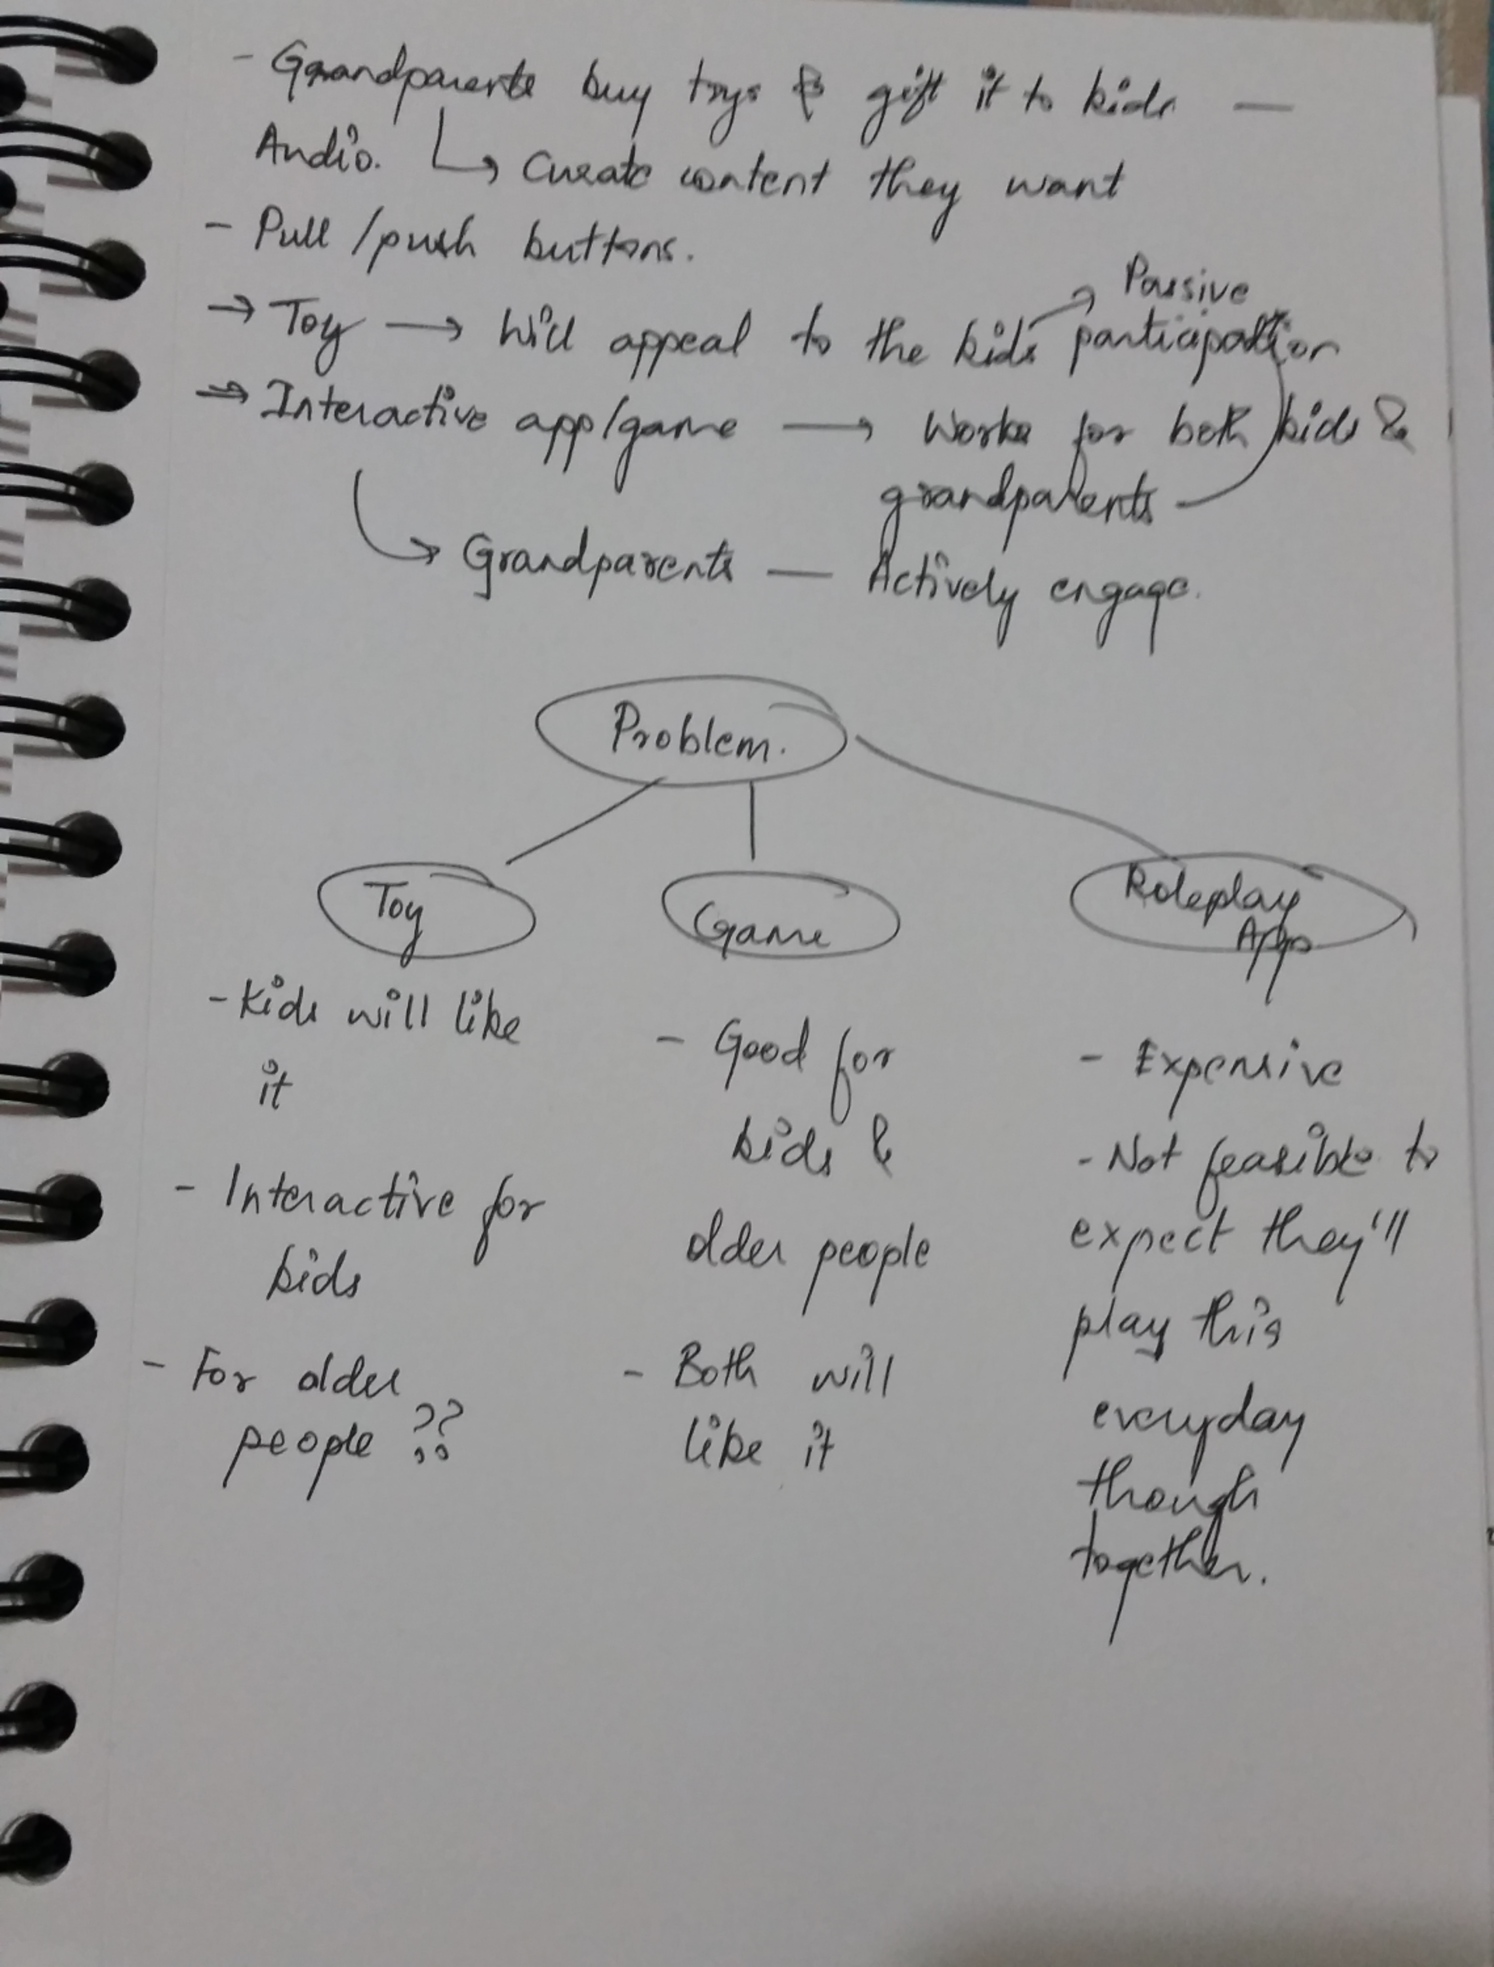 - Grandparents buy toys & gift it to kids —
Audio. ↳ Curate content they want
- Pull /push buttons.
→ Toy → Will appeal to the kids → Passive participation
⇒ Interactive app/game → Works for both kids &
grandparents
↳ Grandparents — Actively engage.
Problem.
Toy
- Kids will like
it
- Interactive for
kids
- For older
people ??
Game
- Good for
kids &
older people
- Both will
like it
Roleplay
App
- Expensive
- Not feasible to
expect they'll
play this
everyday
though
together.